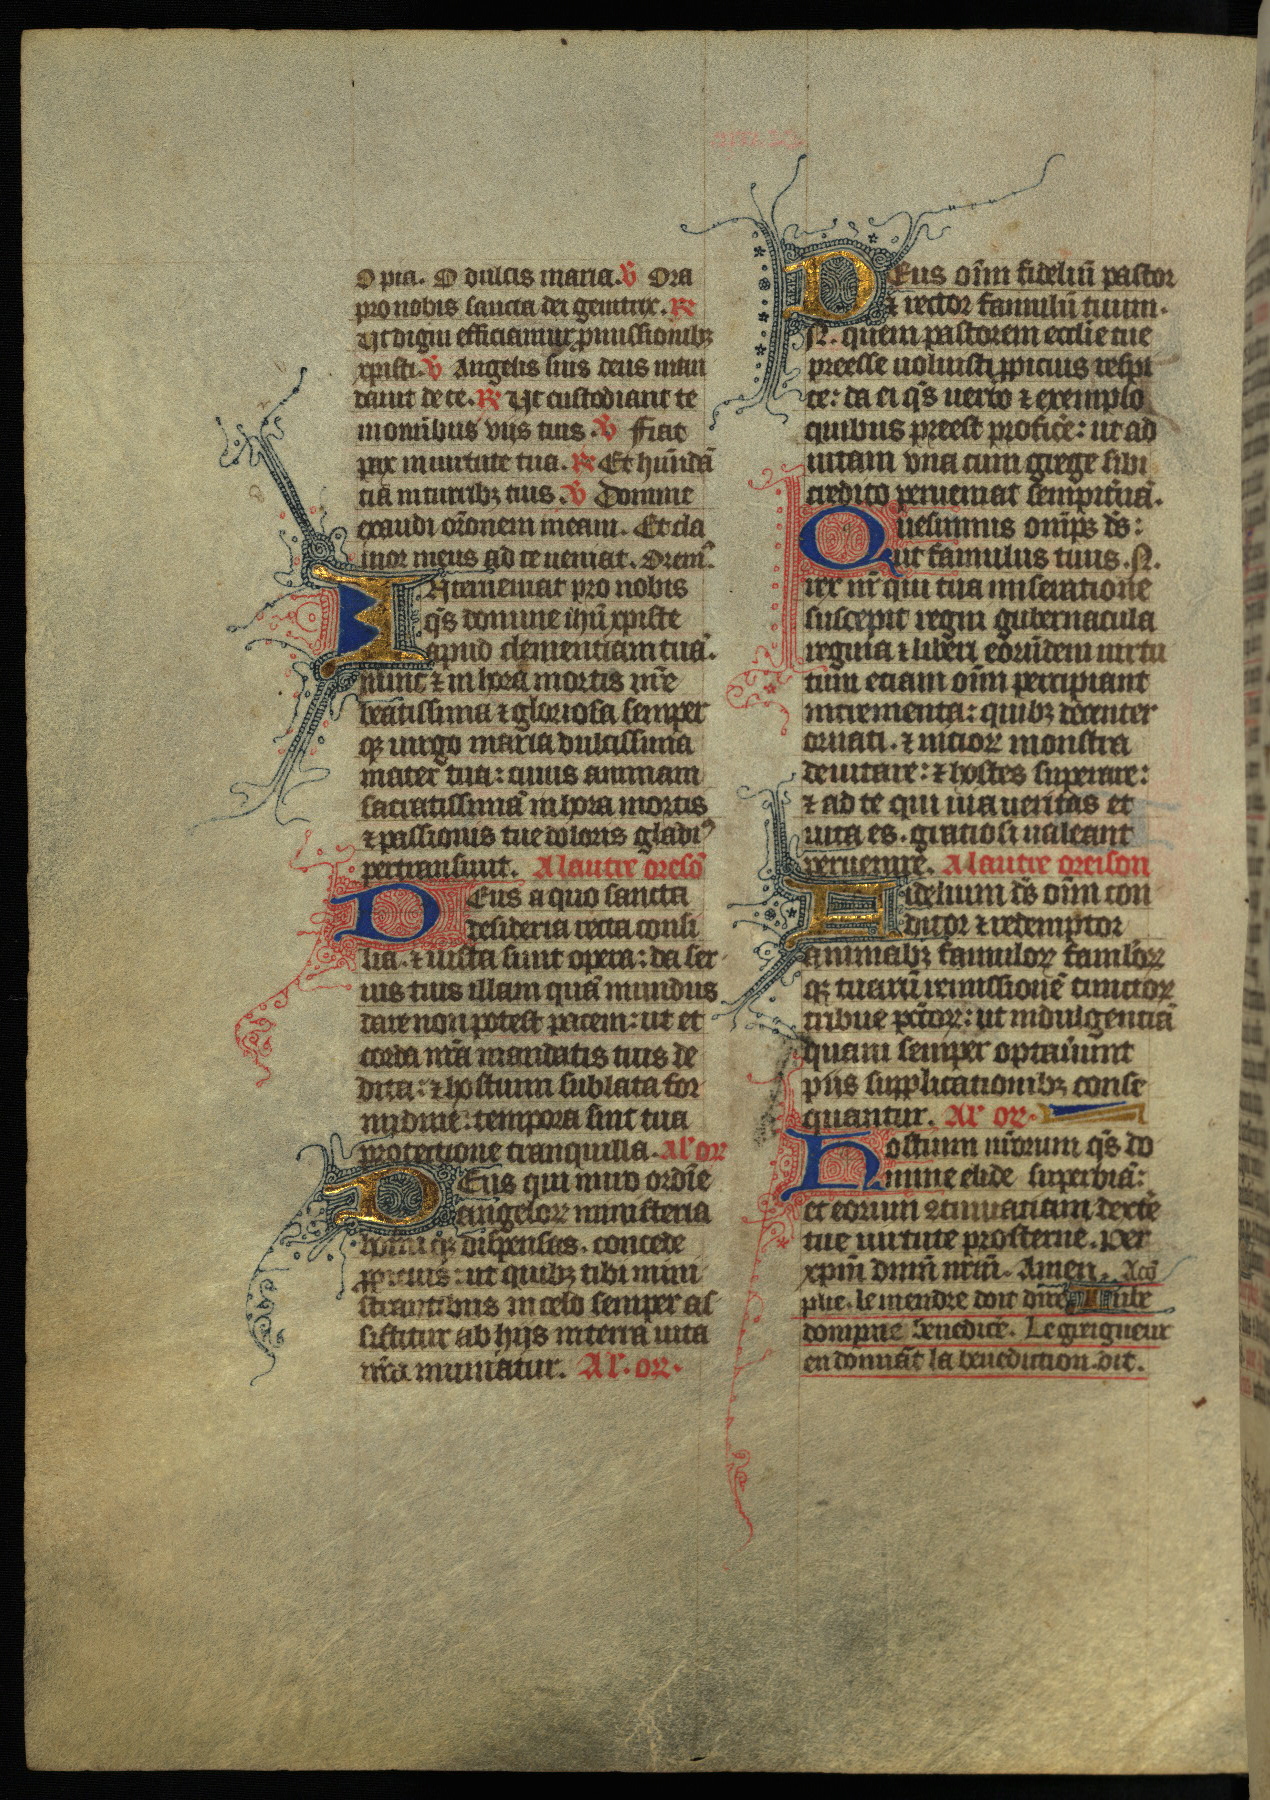 O pia. O dulcis maria. V Ora
pro nobis sancta dei genitrix. R
Ut digni efficiamur p̱missionibꝫ
xpisti. V Angelis suis deus man
dauit de te. R Ut custodiant te
in om̄ibus viis tuis. V Fiat
pax in uirtute tua. R Et hūndā
tiā in turribꝫ tuis. V Domine
exaudi or̄onem meam. Et cla
mor meus ad te ueniat. Orem̄.
Interueniat pro nobis
q̄s domine ih̄u xpiste
apud clementiam tuā.
nunc ⁊ in hora mortis nr̄e
beatissima ⁊ gloriosa semper
qꝫ uirgo maria dulcissima
mater tua: cuius animam
sacratissimā in hora mortis
⁊ passionis tue doloris gladiꝰ
pertransiuit. A lautre oresō
Deus a quo sancta
desideria recta consi
lia. ⁊ iusta sunt opera: da ser
uis tuis illam quā mundus
dare non potest pacem: ut et
corda nr̄a mandatis tuis de
dita: ⁊ hostium sublata for
midine: tempora sint tua
protectione tranquilla. Al' or
Deus qui miro ordīe
angeloꝝ ministeria
hoīm qꝫ dispensas. concede
ꝓpicius: ut quibꝫ tibi mini
strantibus in celo semper as
sistitur ab hijs in terra uita
nr̄a muniatur. Al'. or.
Deus om̄i fideliū pastor
⁊ rector famulū tuum.
N. quem pastorem ecclie tue
preesse uoluisti ꝓpicius respi
ce: da ei q̄s uerbo ⁊ exemplo
quibus preest proficē: ut ad
uitam vna cum grege sibi
credito perueniat sempitnā.
Quesumus omīps d̄s:
ut famulus tuus. N.
rex nr̄ qui tua miseratione
suscepit regni gubernacula
regina ⁊ liberi eorūdem uirtu
tum etiam oīm percipiant
incrementa: quibꝫ decenter
ornati. ⁊ uicioꝝ monstra
deuitare: ⁊ hostes superare:
⁊ ad te qui uia ueritas et
uita es. gratiosi ualeant
peruenire. A lautre oreison
Fidelium d̄s oīm con
ditor ⁊ redemptor
animabꝫ famuloꝝ famlaꝝ
qꝫ tuarū remissionē cunctoꝝ
tribue pctōꝝ: ut indulgentiā
quam semper optauerunt
piis supplicationibꝫ conse
quantur. Al' or.
Hostium nr̄orum q̄s do
mine elide superbiā:
et eorum ꝯtumaciam dexte
tue uirtute prosterne. Per
xpm̄ dnm̄ nrm̄. Amen. A cō
plie. le mendre doit dire Iube
dompne benedicē. Le greigneur
en donnāt la benediction. dit.